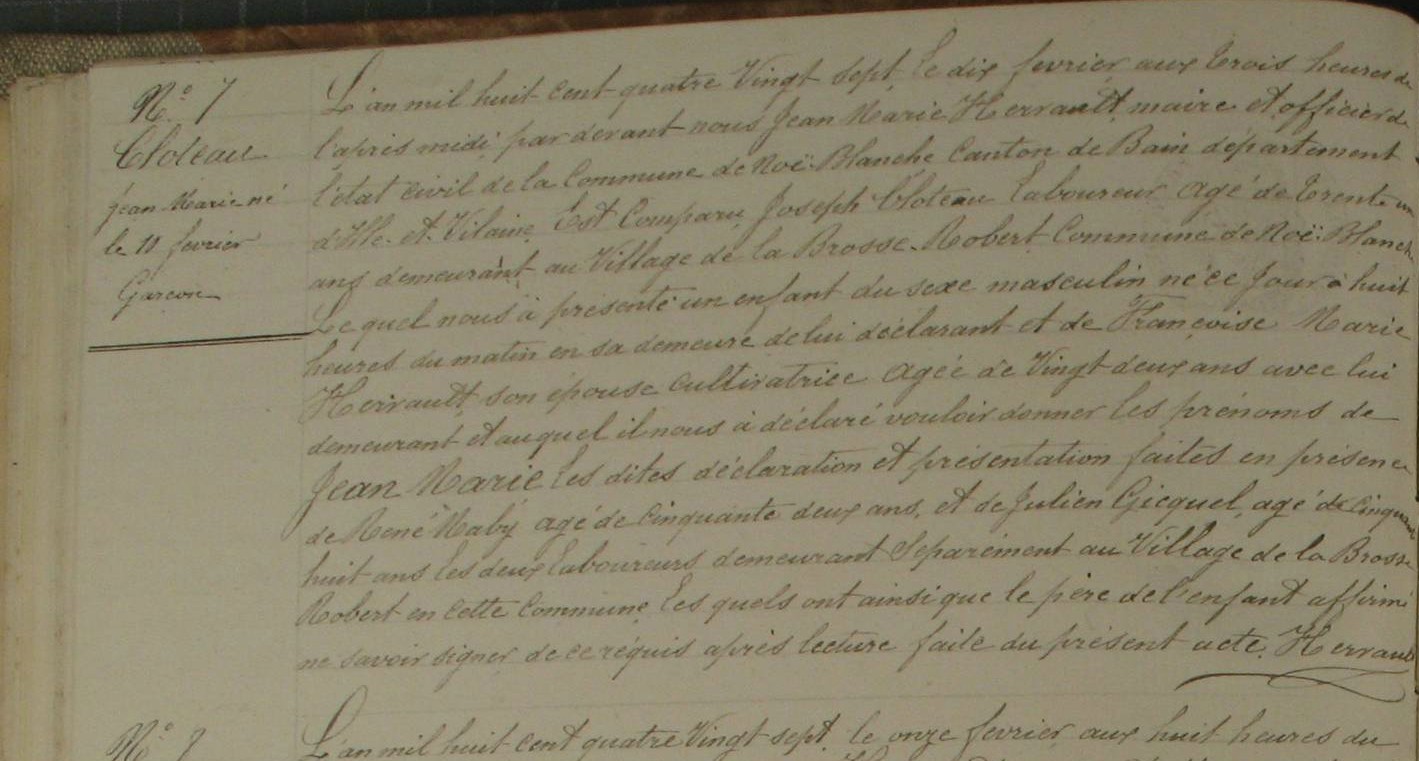 N.° 7
Cloteau
Jean Marie né
le 10 fevrier
Garcon
L'an mil huit cent quatre Vingt sept, le dix fevrier aux trois heures de
l'après midi, par devant nous Jean Marie Herrault, maire et officier de
l'état civil de la Commune de Noë-Blanche Canton de Bain département
d'Ille-et-Vilaine Est Comparu Joseph Cloteau laboureur agé de trente un
ans demeurant au Village de la Brosse-Robert Commune de Noë-Blanche
Le quel nous à présenté un enfant du sexe masculin né ce Jour à huit
heures du matin en sa demeure de lui déclarant et de Françoise Marie
Herrault, son épouse cultivatrice agée de Vingt deux ans avec lui
demeurant et auquel il nous à déclaré vouloir donner les prénoms de
Jean Marie les dites déclaration et présentation faites en présence
de René Maby agé de cinquante deux ans, et de Julien Gicquel, agé de cinquante
huit ans les deux laboureurs demeurant Séparément au Village de la Brosse
Robert en cette Commune, les quels ont ainsi que le père de l'enfant affirmé
ne savoir signer de ce réquis après lecture faite du présent acte. Herrault
N.°
L'an mil huit cent quatre Vingt sept, le onze fevrier aux huit heures du